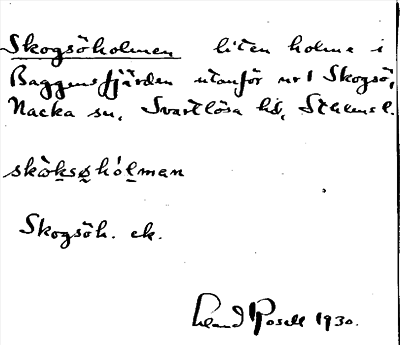 Skogsöholmen liten holme i
Baggensfjärden utanför nr 1 Skogsö,
Nacka sn, Svartlösa hd, Sthlms l.
skòksøhólman
Skogsöh. ek.
Posse 1930.